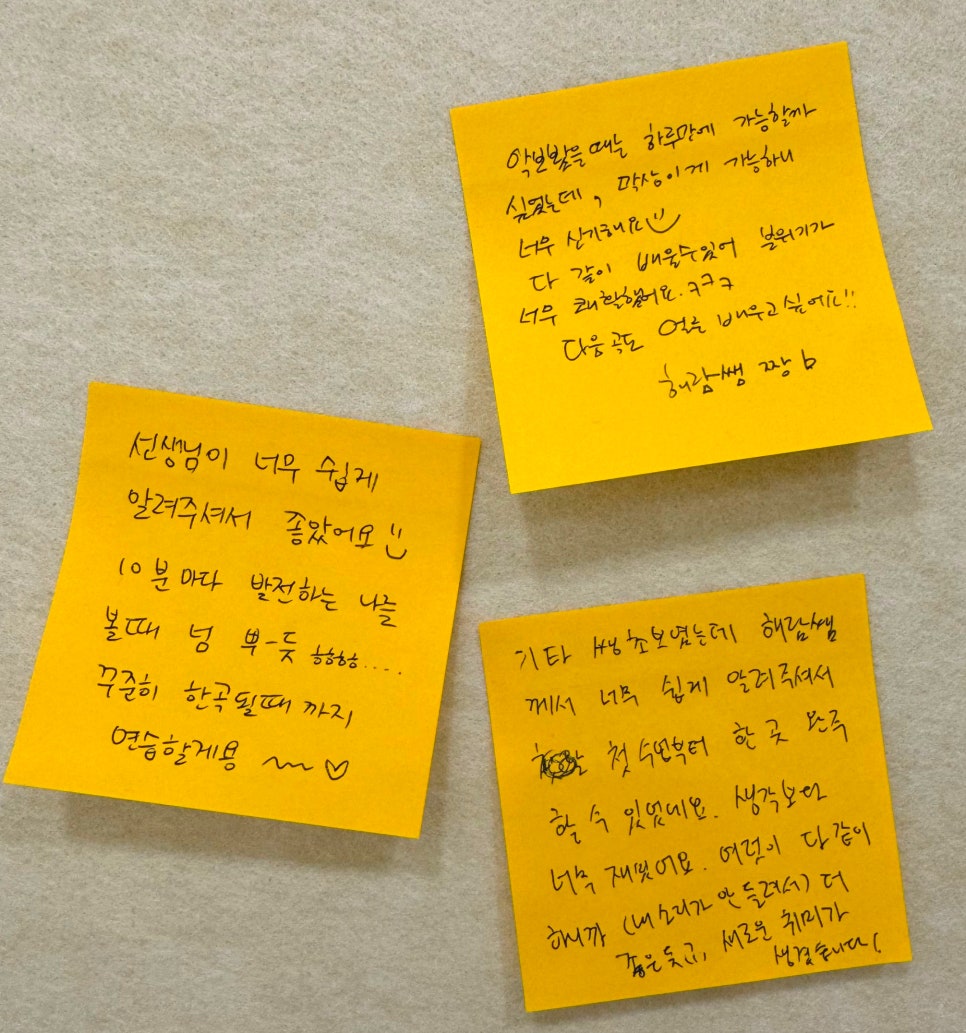 악보봤을때는 하루만에 가능할까
싶었는데, 막상이게 가능하니
너무 신기해요
다 같이 배울수있어 분위기가
너무 쾌활했어요.ㅋㅋㅋ
다음곡도 얼른 배우고싶에요!!
해람쌤 짱b
선생님이 너무 쉽게
알려주셔서 좋았어요
10분마다 발전하는 나를
볼때 넘 뿌-듯 ㅎㅎㅎㅎ....
꾸준히 한곡될때까지
연습할게용 ~~ ♡
기타 쌩초보였는데 해람쌤
께서 너무 쉽게 알려주셔서
첫 수업부터 한 곡 완주
할 수 있었네요. 생각보단
너무 재밌어요. 여럿이 다같이
하니까 (내소리가 안들려서) 더
좋은듯하고, 새로운 취미가
생겼습니다!